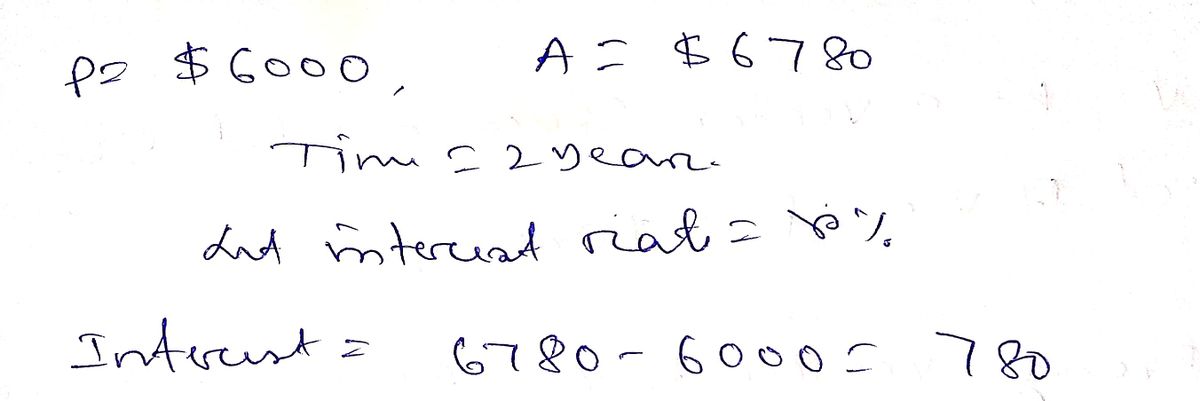 P = $6000, A = $6780
Time = 2 year.
Let interest rate = r%
Interest = 6780 - 6000 = 780